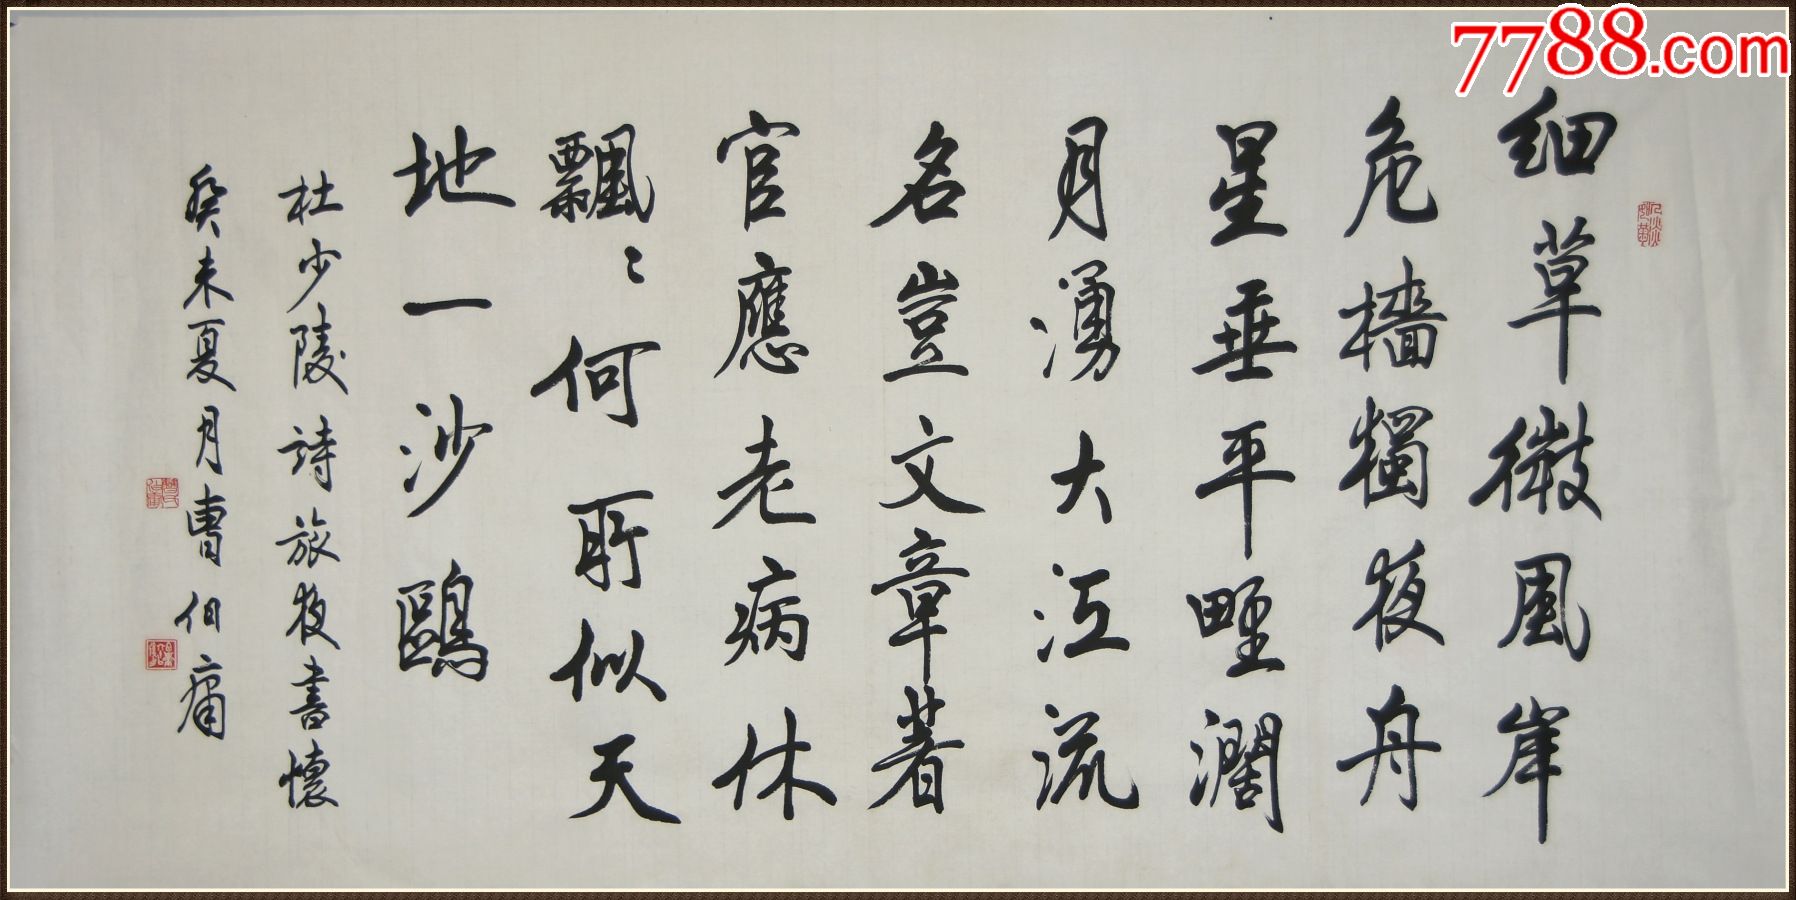 7788.com
细草微風岸
危檣獨夜舟
星垂平野濶
月湧大江流
名豈文章著
官應老病休
飄〻何所似天
地一沙鷗
杜少陵詩旅夜書懷
癸未夏月曹伯庸